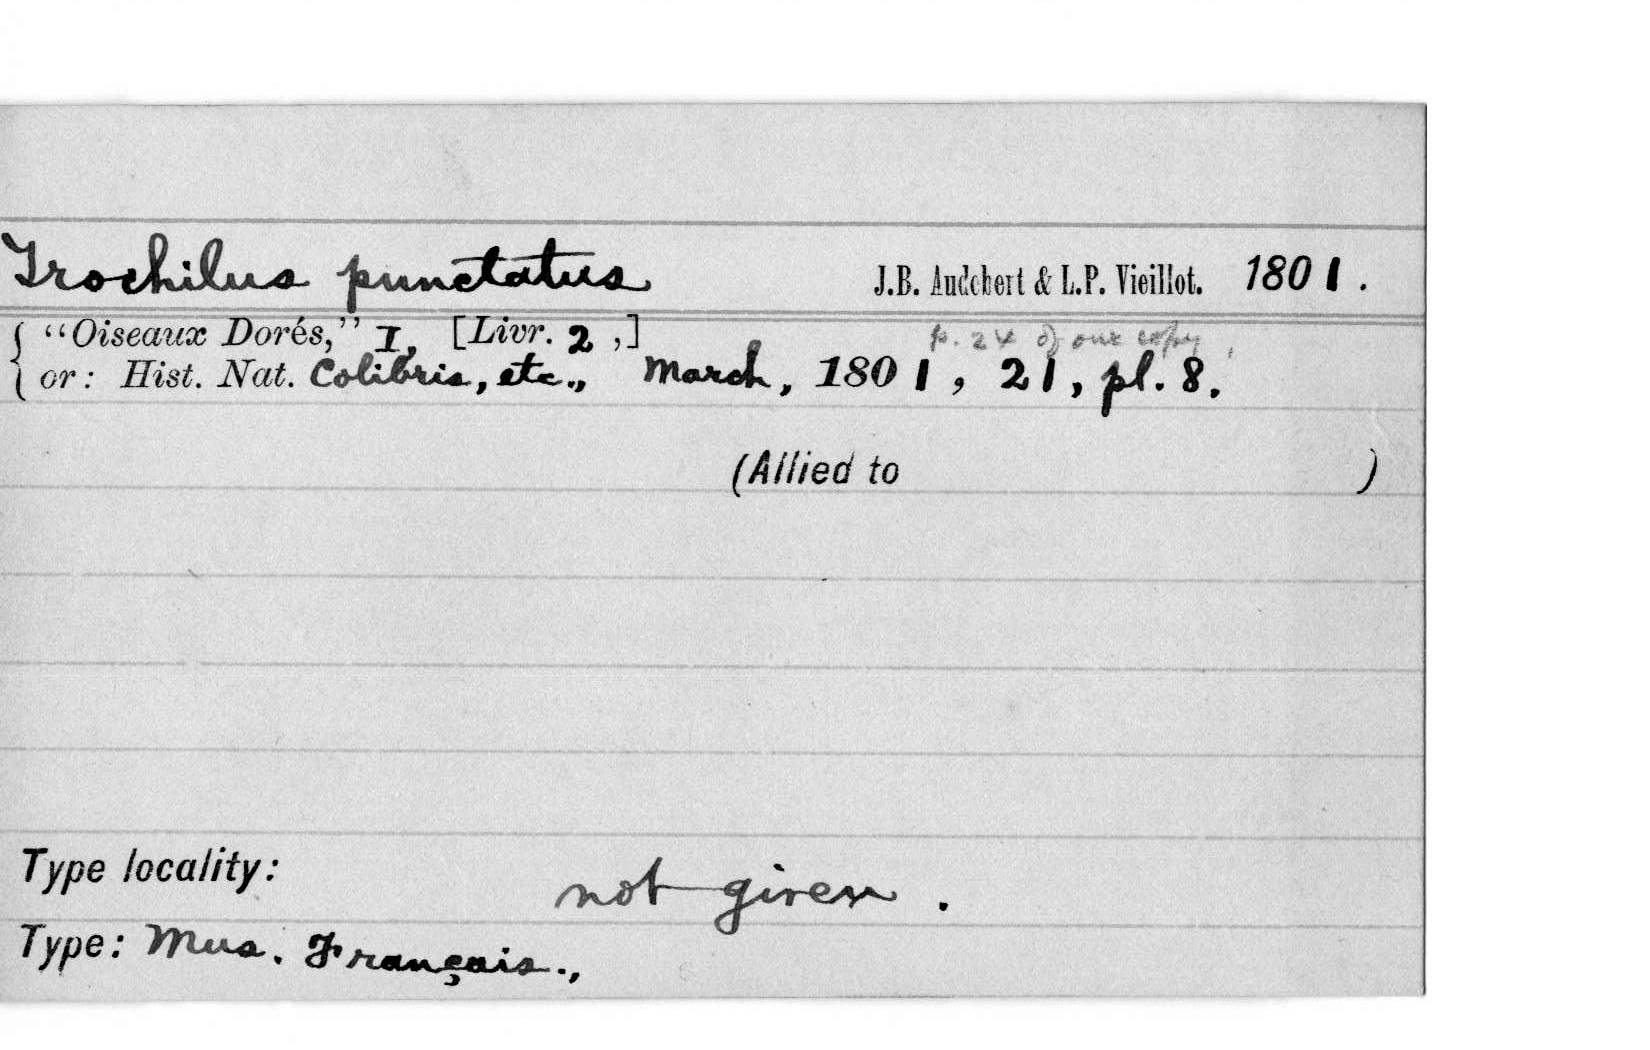 Trochilus punctatus J.B. Audebert & L.P. Vieillot. 1801.
"Oiseaux Dorés," I, [Livr. 2,]
p. 24 of our copy
or: Hist. Nat. Colibris, etc., March, 1801, 21, pl. 8.
(Allied to )
Type locality: not given.
Type: Mus. Français.,